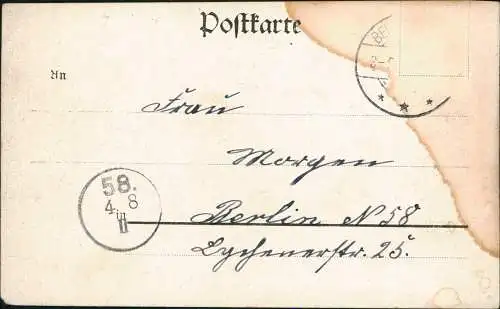 Postkarte
An
Frau
Morgen
Berlin N 58
Lychenerstr. 25.
58.
4. 8
II